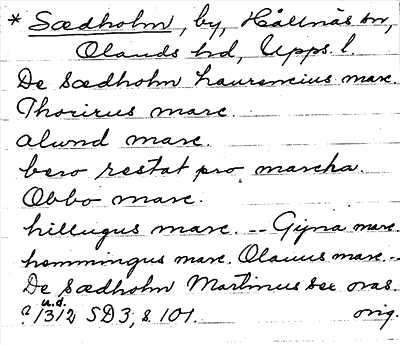 * Sædholm, by, Hållnäs sn,
Olands hd, Upps. l.
De Sædholm laurencius marc.
Thorirus marc.
alwnd marc.
bero restat pro marcha.
Obbo marc.
hillugus marc. -- Gijna marc.
hemmingus marc. Olauus marc. --
De Sædholm Martinus sex oras.
u.d.
?/1312 SD3, s. 101. orig.